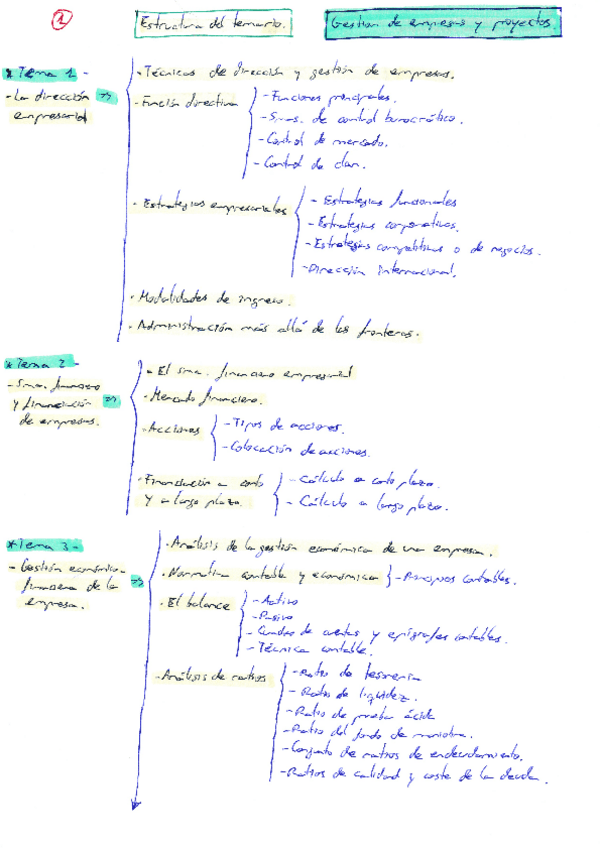 1
Estructura del temario.
Gestion de empresas y proyectos
* Tema 1 -
- La dirección empresarial =>
· Técnicas de dirección y gestión de empresas.
· Función directiva
- Funciones principales.
- Smas. de control burocrático.
- Control de mercado.
- Control de clan.
· Estrategias empresariales
- Estrategias funcionales
- Estrategias corporativas.
- Estrategias competitivas o de negocios.
- Dirección internacional.
· Modalidades de ingreso.
· Administración más allá de las fronteras.
* Tema 2 -
- Sma. financiero
y financiación =>
de empresas.
· El sma. financiero empresarial
· Mercado financiero.
· Acciones
- Tipos de acciones.
- Colocación de acciones.
· Financiación a corto
y a largo plazo.
- Cálculo a corto plazo.
- Cálculo a largo plazo.
* Tema 3 -
- Gestión económico-
financiera de la =>
empresa.
· Análisis de la gestión económica de una empresa.
· Normativa contable y económica } - Principios contables.
· El balance
- Activo
- Pasivo
- Cuadro de cuentas y epígrafes contables.
- Técnica contable.
· Análisis de ratios
- Ratio de tesorería
- Ratio de liquidez.
- Ratio de prueba ácida
- Ratio del fondo de maniobra.
- Conjunto de ratios de endeudamiento.
- Ratios de calidad y coste de la deuda.